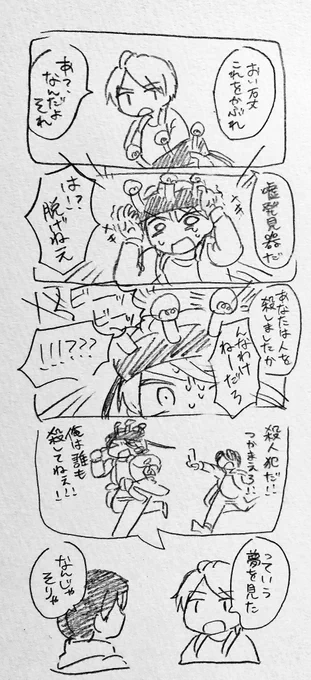 おい万丈
これをかぶれ
あ?
なんだよ
それ
嘘発見器だ
は!?
脱げねえ
あなたは人を
殺しましたか
んなわけ
ねーだろ
!!!???
殺人犯だ!!
つかまえろ!!
俺は誰も
殺してねえ!!
っていう
夢を見た
なんじゃ
そりゃ